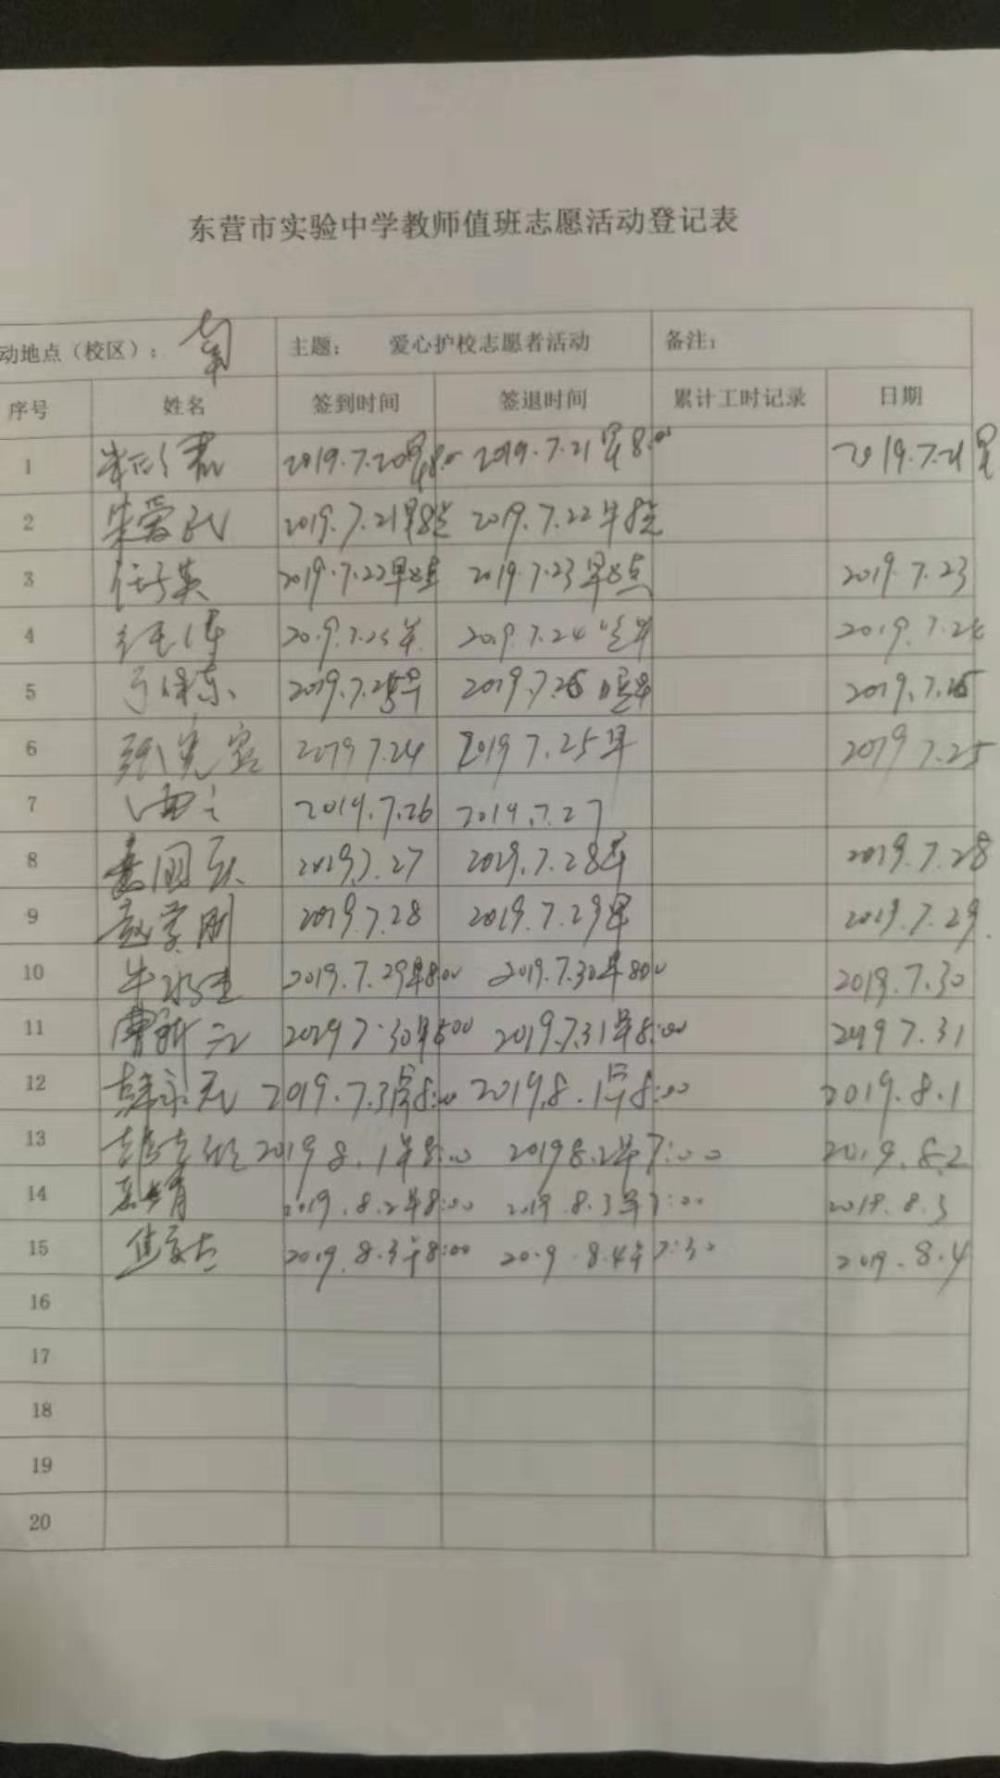 东营市实验中学教师值班志愿活动登记表
动地点（校区）： 主题： 爱心护校志愿者活动 备注：
序号 姓名 签到时间 签退时间 累计工时记录 日期
1 2019.7.20早8:00 2019.7.21早8:00 2019.7.21早
2 朱爱民 2019.7.21早8点 2019.7.22早8点
3 任子英 2019.7.22早8点 2019.7.23早8点 2019.7.23
4 2019.7.23早 2019.7.24 早 2019.7.24
5 2019.7.25早 2019.7.26 2019.7.26
6 张宪 2019 7.24 2019 7.25早 2019 7.25
7 2019.7.26 2019.7.27
8 国庆 2019.7.27 2019.7.28早 2019.7.28
9 赵学刚 2019.7.28 2019.7.29早 2019.7.29
10 牛 2019.7.29早8:00 2019.7.30早8:00 2019.7.30
11 曹新 2019 7.30早8:00 2019.7.31早8:00 2019 7.31
12 2019.7.31早8:00 2019.8.1早8:00 2019.8.1
13 2019 8.1早8:00 2019 8.2早7:00 2019.8.2
14 2019.8.2早8:00 2019.8.3早7:00 2019.8.3
15 2019.8.3早8:00 2019.8.4早7:30 2019.8.4
16
17
18
19
20